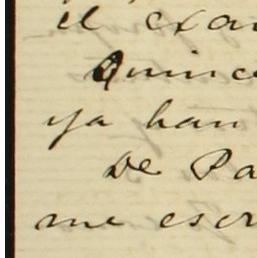 el exa
Quince
ya han
De Pa
me escr